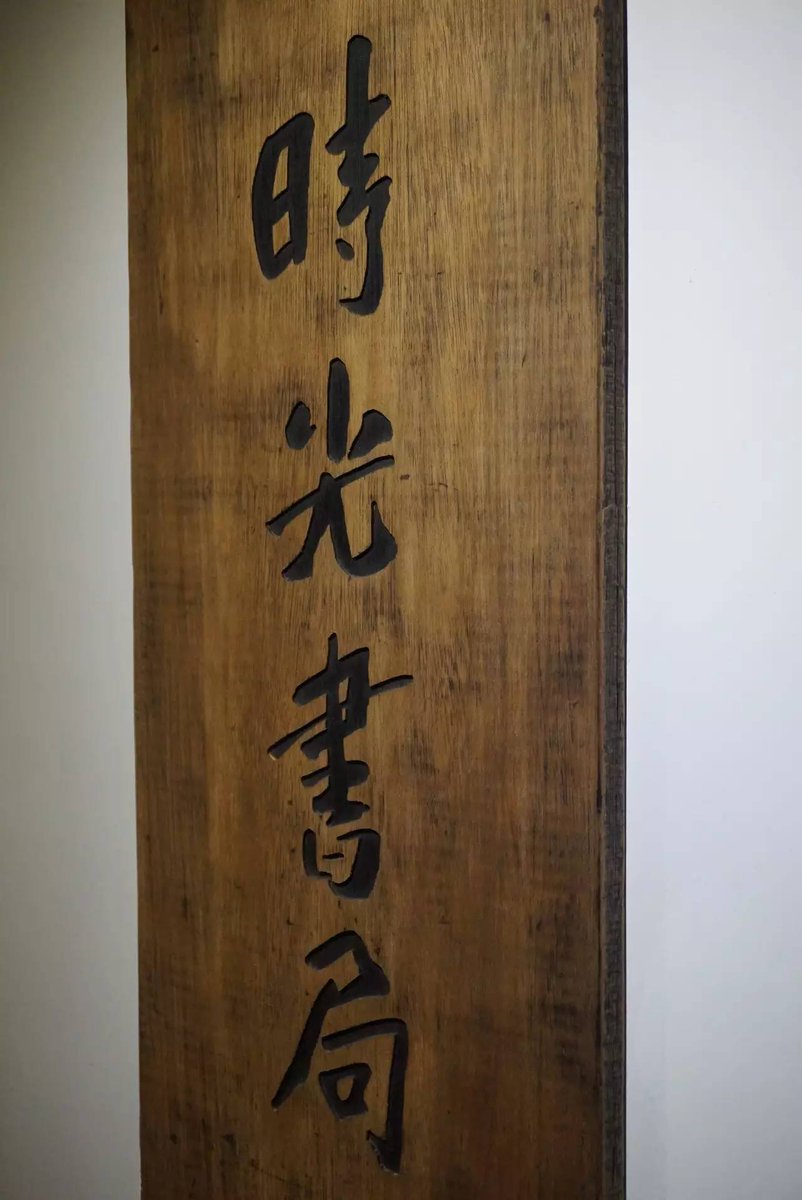 時光書局